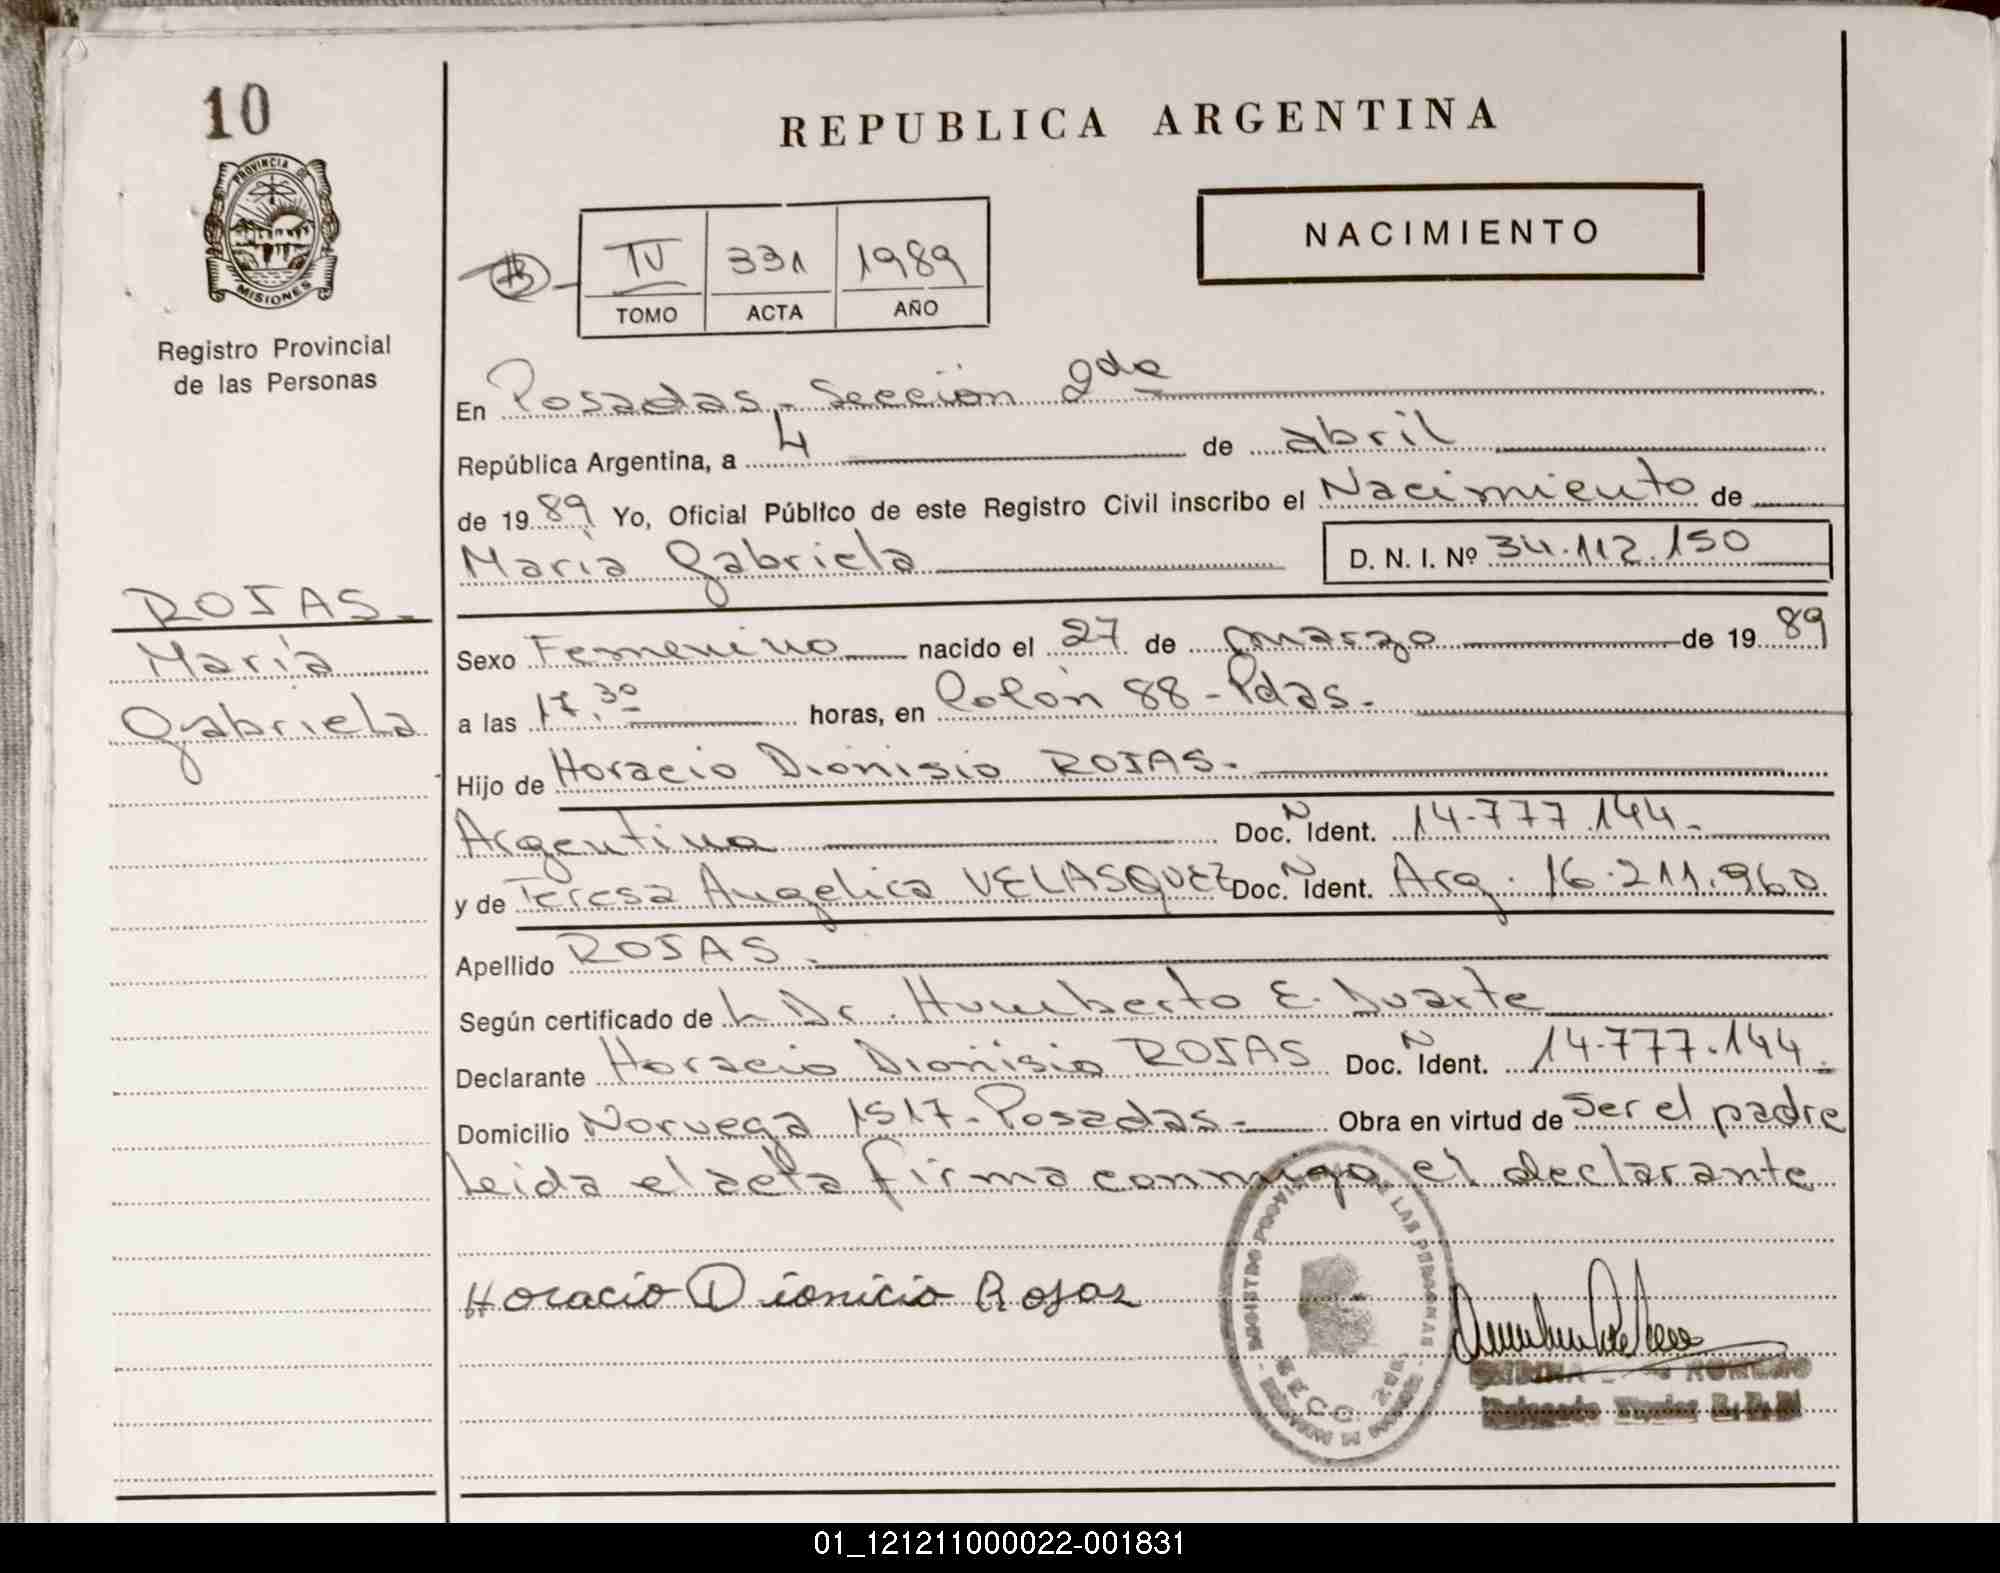 10
PROVINCIA DE
MISIONES
Registro Provincial
de las Personas
REPUBLICA ARGENTINA
NACIMIENTO
B - IV 331 1989
TOMO ACTA AÑO
En Posadas - Sección 2da
República Argentina, a 4 de abril
de 1989 Yo, Oficial Público de este Registro Civil inscribo el Nacimiento de
María Gabriela D. N. I. Nº 34.112.150
ROJAS -
María
Gabriela
Sexo Femenino nacido el 27 de marzo de 1989
a las 17.30 horas, en Colón 88 - Pdas.
Hijo de Horacio Dionisio ROJAS -
Argentina Doc. N Ident. 14.777.144 -
y de Teresa Angelica VELASQUEZ Doc. N Ident. Arg. 16.211.960
Apellido ROJAS -
Según certificado de L Dr. Humberto E. Duarte
Declarante Horacio Dionisio ROJAS Doc. N Ident. 14.777.144 -
Domicilio Norvega 1517 - Posadas - Obra en virtud de ser el padre
Leida el acta firma conmigo el declarante
Horacio Dionicio Rojas
REGISTRO PROVINCIAL DE LAS PERSONAS
SECC. 2da
01_121211000022-001831